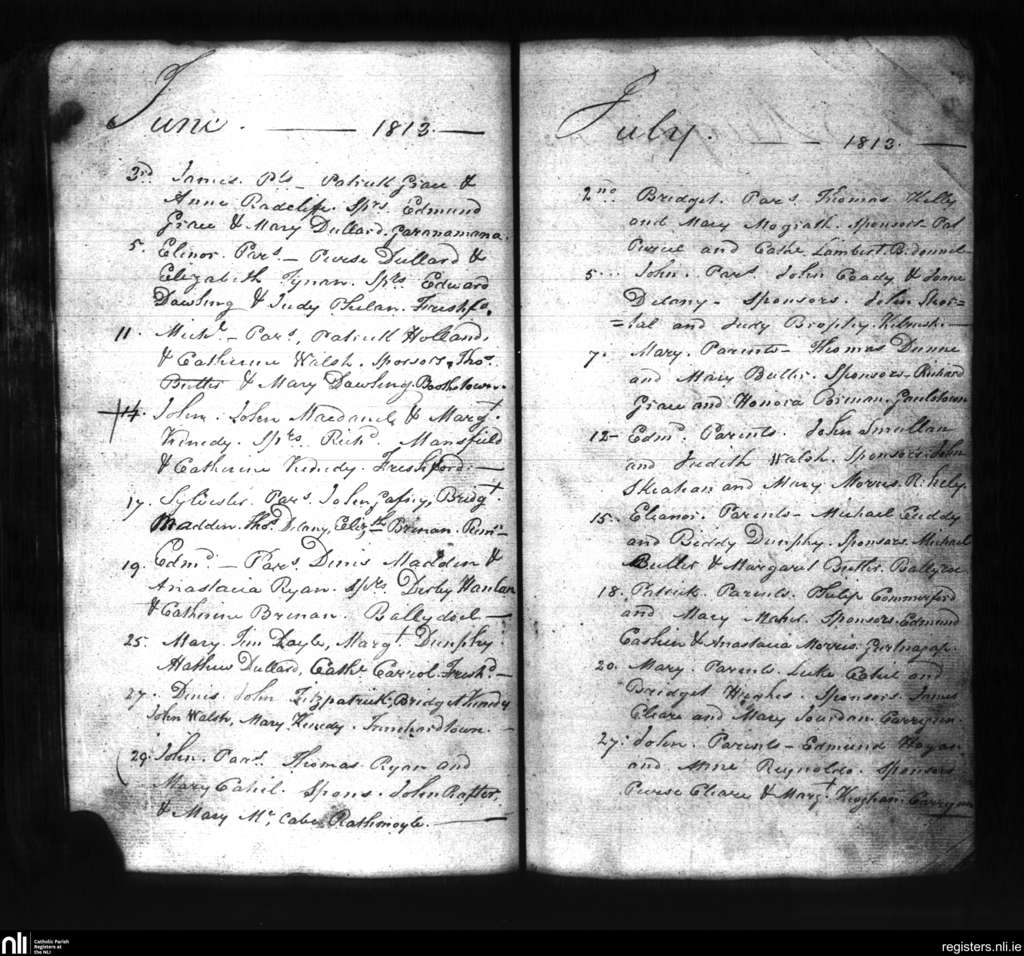 June. — 1813. —
3rd James. Pts – Patrick Grace &
Anne Radcliffe. Sprs. Edmund
Grace & Mary Dullard. Garanamana.
5. Elinor. Pars. – Pierse Dullard &
Elizabeth Tynan. Sprs Edward
Dowling & Judy Phelan. Freshfd.
11. Michl. – Pars. Patrick Holland,
& Catherine Walsh. Sponsors. Thos.
Butler & Mary Dowling. Boothstown.
14. John. John Macdanel & Margt.
Kenedy. Sprs. Richd. Mansfield
& Catherine Kenedy. Freshford. —
17. Sylvester. Pars. John Gafny, Bridgt
Madden. Thos. Delany, Elizth Brenan.
19. Edmd. – Pars. Denis Madden &
Anastacia Ryan. Sprs. Derby Hanlan
& Catherine Brenan. Ballydoel —
25. Mary. Tim Doyle, Margt. Dunphy
Mathew Dullard, Cathe Carrol. Freshd. —
27. Denis. John Fitzpatrick, Bridget Kenedy
John Walsh, Mary Kenedy. —
29. John. Pars. Thomas Ryan and
Mary Cahil. Spons. John Rafter,
& Mary Mc. Cabe Rathmoyle. —
July. — 1813. —
2nd Bridget. Pars. Thomas Kelly
and Mary Mograth. Sponsors Pat
Purcel and Cathe Lambert. B.donnel
5... John. Pars. John Coady & Jane
Delany – Sponsors. John Shor=
=tal and Judy Brophy. —
7. Mary. Parents – Thomas Dunne
and Mary Butler. Sponsors – Richard
Grace and Honora Brenan. Gaulstown
12 – Edmd. Parents. John Smullan
and Judith Walsh. Sponsors. John
Skeahan and Mary Morres. R.hely
15. Eleanor. Parents – Michael Cuddy
and Biddy Dunphy. Sponsors. Michael
Butler & Margaret Butler. Ballyroe
18. Patrick. Parents. Philip Commerford
and Mary Maher. Sponsors. Edmund
Cashin & Anastacia Morris. Gurtnagap.
20. Mary. Parents. Luke Cahil and
Bridget Hughes. Sponsors. James
Cleare and Mary Jourdan.
27. John. Parents – Edmund Hogan
and Anne Reynolds. Sponsors
Pierse Cleare & Margt. Keoghan.
nli Catholic Parish
Registers at
the NLI
registers.nli.ie